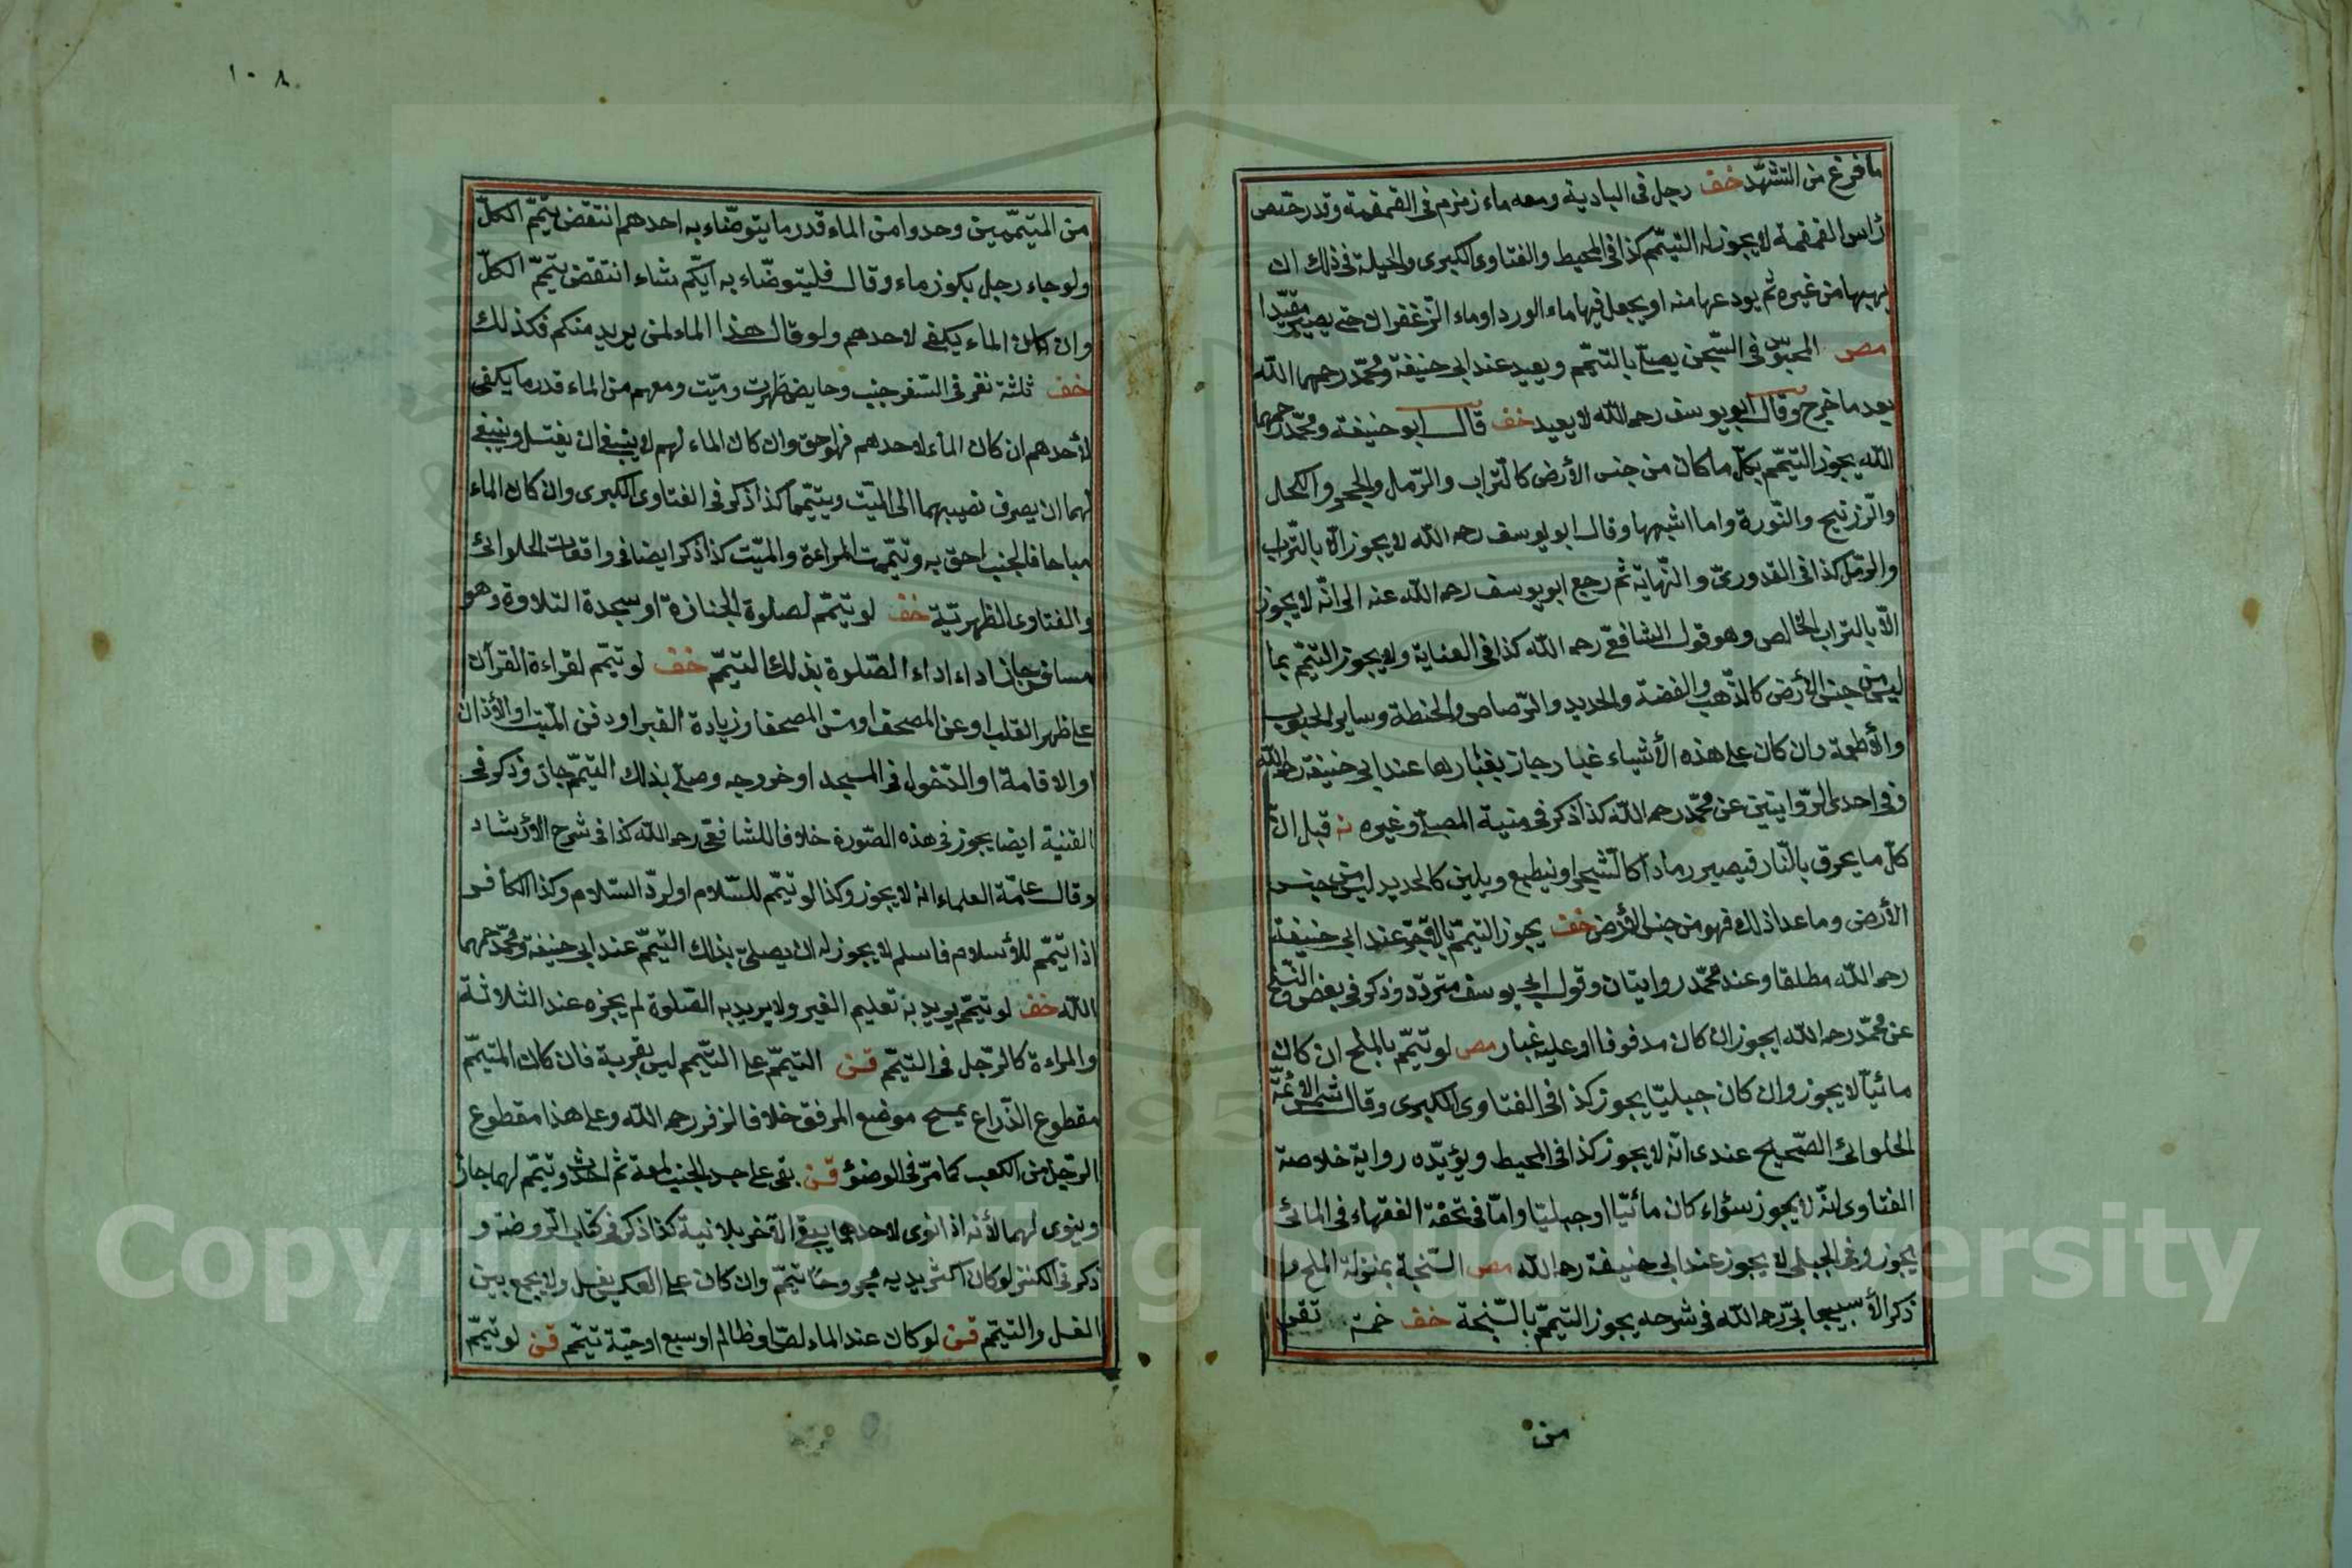 ما فرغ من التشهّد خف رجل فى البادية ومعه ماء زمزم فى القمقمة وقد رصّص
رأس القمقمة لا يجوز له التيمّم كذا فى المحيط والفتاوى الكبرى والحيلة فى ذلك ان
يهبها من غيره ثم يودعها منه او يجعل فيها ماء الورد او ماء الزعفران حتى يصير مقيّدا
مص المحبوس فى السّجن يصلّى بالتيمّم ويعيد عند ابى حنيفة ومحمّد رحمهما الله
بعد ما خرج وقال ابو يوسف رحمه الله لا يعيد خف قال ابو حنيفة ومحمّد رحمهما
الله يجوز التيمّم بكلّ ما كان من جنس الأرض كالتّراب والرّمل والحجر والكحل
والزّرنيج والنّورة واما اشبهها وقال ابو يوسف رحمه الله لا يجوز الّا بالتّراب
والرّمل كذا فى القدورىّ والنّهاية ثم رجع ابو يوسف رحمه الله عنه الى انّه لا يجوز
الّا بالتراب الخالص وهو قول الشافعىّ رحمه الله كذا فى العناية ولا يجوز التيمّم بما
ليس من جنس الأرض كالذّهب والفضة والحديد والرّصاص والحنطة وساير الحبوب
والأطعمة وان كان على هذه الأشياء غبار جاز بغبارها عند ابى حنيفة رحمه الله
وفى احدى الرّوايتين عن محمّد رحمه الله كذا ذكر فى منية المصلّى وغيره نه قيل انّ
كلّ ما يحرق بالنّار فيصير رمادا كالشّجر او ينطبع ويلين كالحديد ليس من جنس
الأرض وما عدا ذلك فهو من جنس الأرض خف يجوز التيمّم بالآجرّ عند ابى حنيفة
رحمه الله مطلقا وعند محمّد روايتان وقول ابى يوسف متردّد وذكر فى بعض النّسخ
عن محمّد رحمه الله يجوز ان كان مدقوقا او عليه غبار مص لو تيمّم بالملح ان كان
مائيّا لا يجوز وان كان جبليّا يجوز كذا فى الفتاوى الكبرى وقال شمس الأئمّة
الحلوانى الصّحيح عندى انّه لا يجوز كذا فى المحيط ويؤيّده رواية خلاصة
الفتاوى انّه لا يجوز سواء كان مائيّا او جبليّا وامّا فى تحفة الفقهاء فى المائى
يجوز وفى الجبلى لا يجوز عند ابى حنيفة رحمه الله مص السّبخة بمنزلة الملح و
ذكر الأسبيجابىّ رحمه الله فى شرحه يجوز التيمّم بالسّبخة خف خمسة نفر
من
١٠٨
من المتيمّمين وجدوا من الماء قدر ما يتوضّاء به احدهم انتقض تيمّم الكلّ
ولو جاء رجل بكوز ماء وقال فليتوضّاء به ايّكم شاء انتقض تيمّم الكلّ
وان كان الماء يكفى لاحدهم ولو قال هذا الماء لمن يريد منكم فكذلك
خف ثلثة نفر فى السّفر جنب وحايض طهرت وميّت ومعهم من الماء قدر ما يكفى
لأحدهم ان كان الماء لاحدهم فهو احق وان كان الماء لهم لا ينبغى ان يغتسل وينبغى
لهما ان يصرف نصيبهما الى الميّت ويتيمّما كذا ذكر فى الفتاوى الكبرى وان كان الماء
مباحا فالجنب احق به وتيمّمت المراءة والميّت كذا ذكر ايضا فى واقعات الحلوانى
والفتاوى الظهريّة خف لو تيمّم لصلوة الجنازة او سجدة التلاوة وهو
مسافر جاز اداء اداء الصّلوة بذلك التيمّم خف لو تيمّم لقراءة القرآن
على ظهر القلب او عن المصحف او مسّ المصحف او زيادة القبر او دفن الميّت او الأذان
او الاقامة او الدّخول فى المسجد او خروجه وصلّى بذلك التيمّم جاز وذكر فى
القنية ايضا يجوز فى هذه الصّورة خلافا للشافعىّ رحمه الله كذا فى شرح الأرشاد
وقال عامّة العلماء انه لا يجوز وكذا لو تيمّم للسّلام او لردّ السّلام وكذا الكافر
اذا تيمّم للأسلام فاسلم لا يجوز له ان يصلّى بذلك التيمّم عند ابى حنيفة ومحمّد رحمهما
الله خف لو تيمّم يريد به تعليم الغير ولا يريد به الصّلوة لم يجزه عند الثلاثة
والمراءة كالرّجل فى التيمّم قن التيمّم على التيمّم ليس بقربة فان كان المتيمّم
مقطوع الذّراع يمسح موضع المرفق خلافا لزفر رحمه الله وعلى هذا مقطوع
الرّجل من الكعب كما مرّ فى الوضؤ قن بقى على جسد الجنب لمعة ثم احدث وتيمّم لهما جاز
وينوى لهما لأنه اذا نوى لاحدهما يبقى الآخر بلا نية كذا ذكر فى كتاب الرّوضة و
ذكر فى الكنز لو كان اكثر بدنه مجروحا تيمّم وان كان على العكس يغسل ولا يجمع بين
الغسل والتيمّم قن لو كان عند الماء لصّ او ظالم او سبع او حيّة تيمّم قن لو تيمّم
Copyright © King Saud University